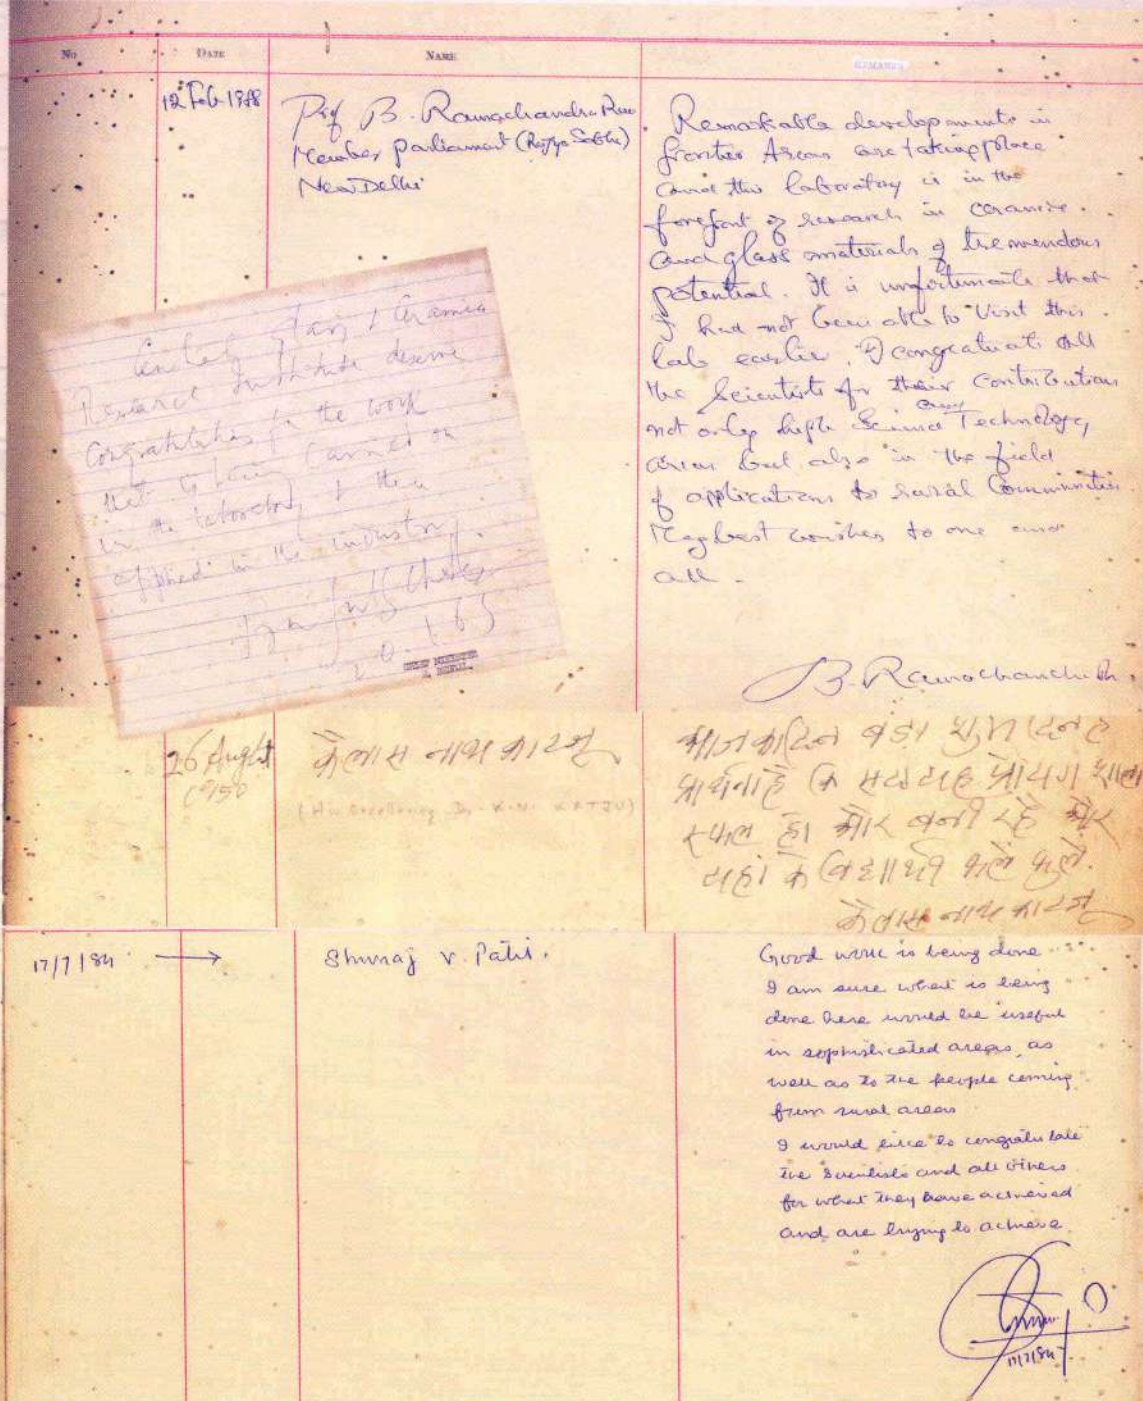 No
DATE
NAME
REMARKS
12 Feb 1988
Prof B. Ramachandra Rao
Member, Parliament (Rajya Sabha)
New Delhi
Remarkable developments in
frontier Areas are taking place
and this laboratory is in the
forefront of research in ceramic
and glass materials of tremendous
potential. It is unfortunate that
I had not been able to visit this
lab earlier. I congratulate all
the Scientists for their contributions
not only Science and Technology
areas but also in the field
of applications to rural Communities
My best wishes to one and
all.
B. Ramachandra Rao
Central Glass & Ceramic
Research Institute deserve
Congratulations for the work
that is being carried on
in the laboratory & then
applied in the industry.
CHIEF MINISTER
26 August
1950
कैलास नाथ काटजू
(His Excellency Dr. K.N. KATJU)
आज का दिन बड़ा शुभ दिन है
प्रार्थना है कि यह प्रयोग शाला
सफल हो और बनी रहे और
यहां के विद्यार्थी फले फूले.
कैलास नाथ काटजू
17/7/84
Shivraj V. Patil.
Good work is being done
I am sure what is being
done here would be useful
in sophisticated areas, as
well as to the people coming
from rural areas
I would like to congratulate
the Scientists and all others
for what they have achieved
and are trying to achieve.
17/7/84